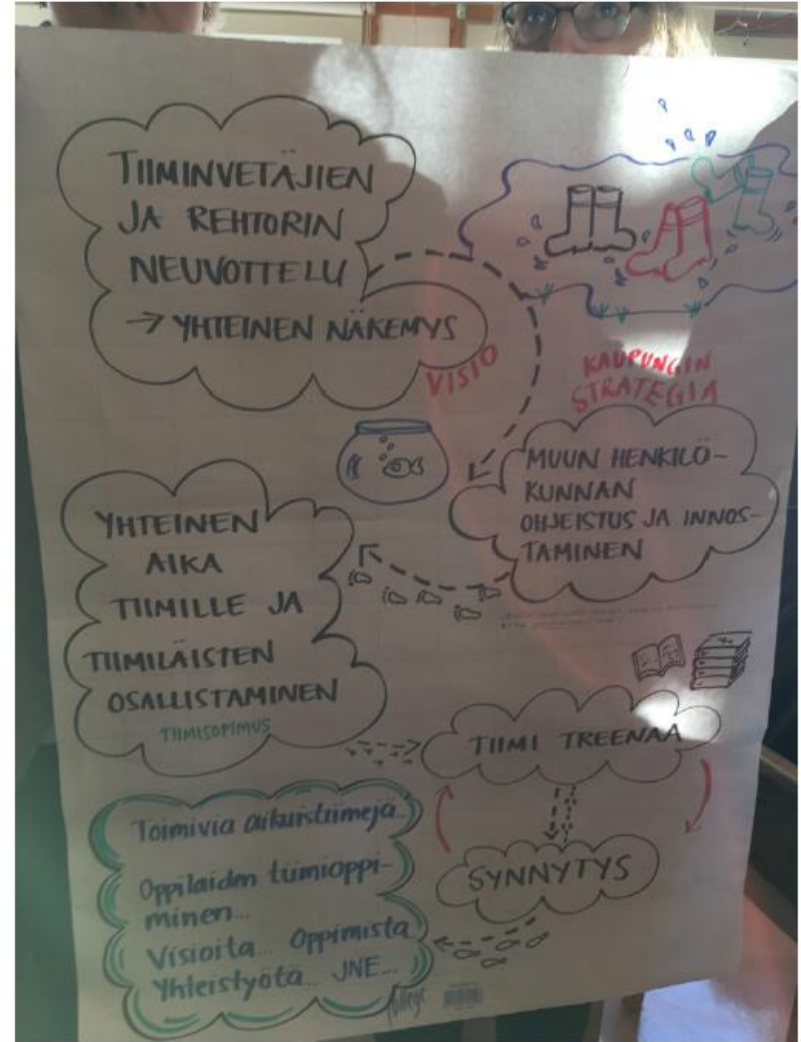 TIIMINVETÄJIEN
JA REHTORIN
NEUVOTTELU
→ YHTEINEN NÄKEMYS
VISIO
KAUPUNGIN
STRATEGIA
MUUN HENKILÖ-
KUNNAN
OHJEISTUS JA INNOS-
TAMINEN
YHTEINEN
AIKA
TIIMILLE JA
TIIMILÄISTEN
OSALLISTAMINEN
TIIMISOPIMUS
TIIMI TREENAA
SYNNYTYS
Toimivia aikuistiimejä...
Oppilaiden tiimioppi-
minen...
Visioita... Oppimista
Yhteistyötä... JNE...